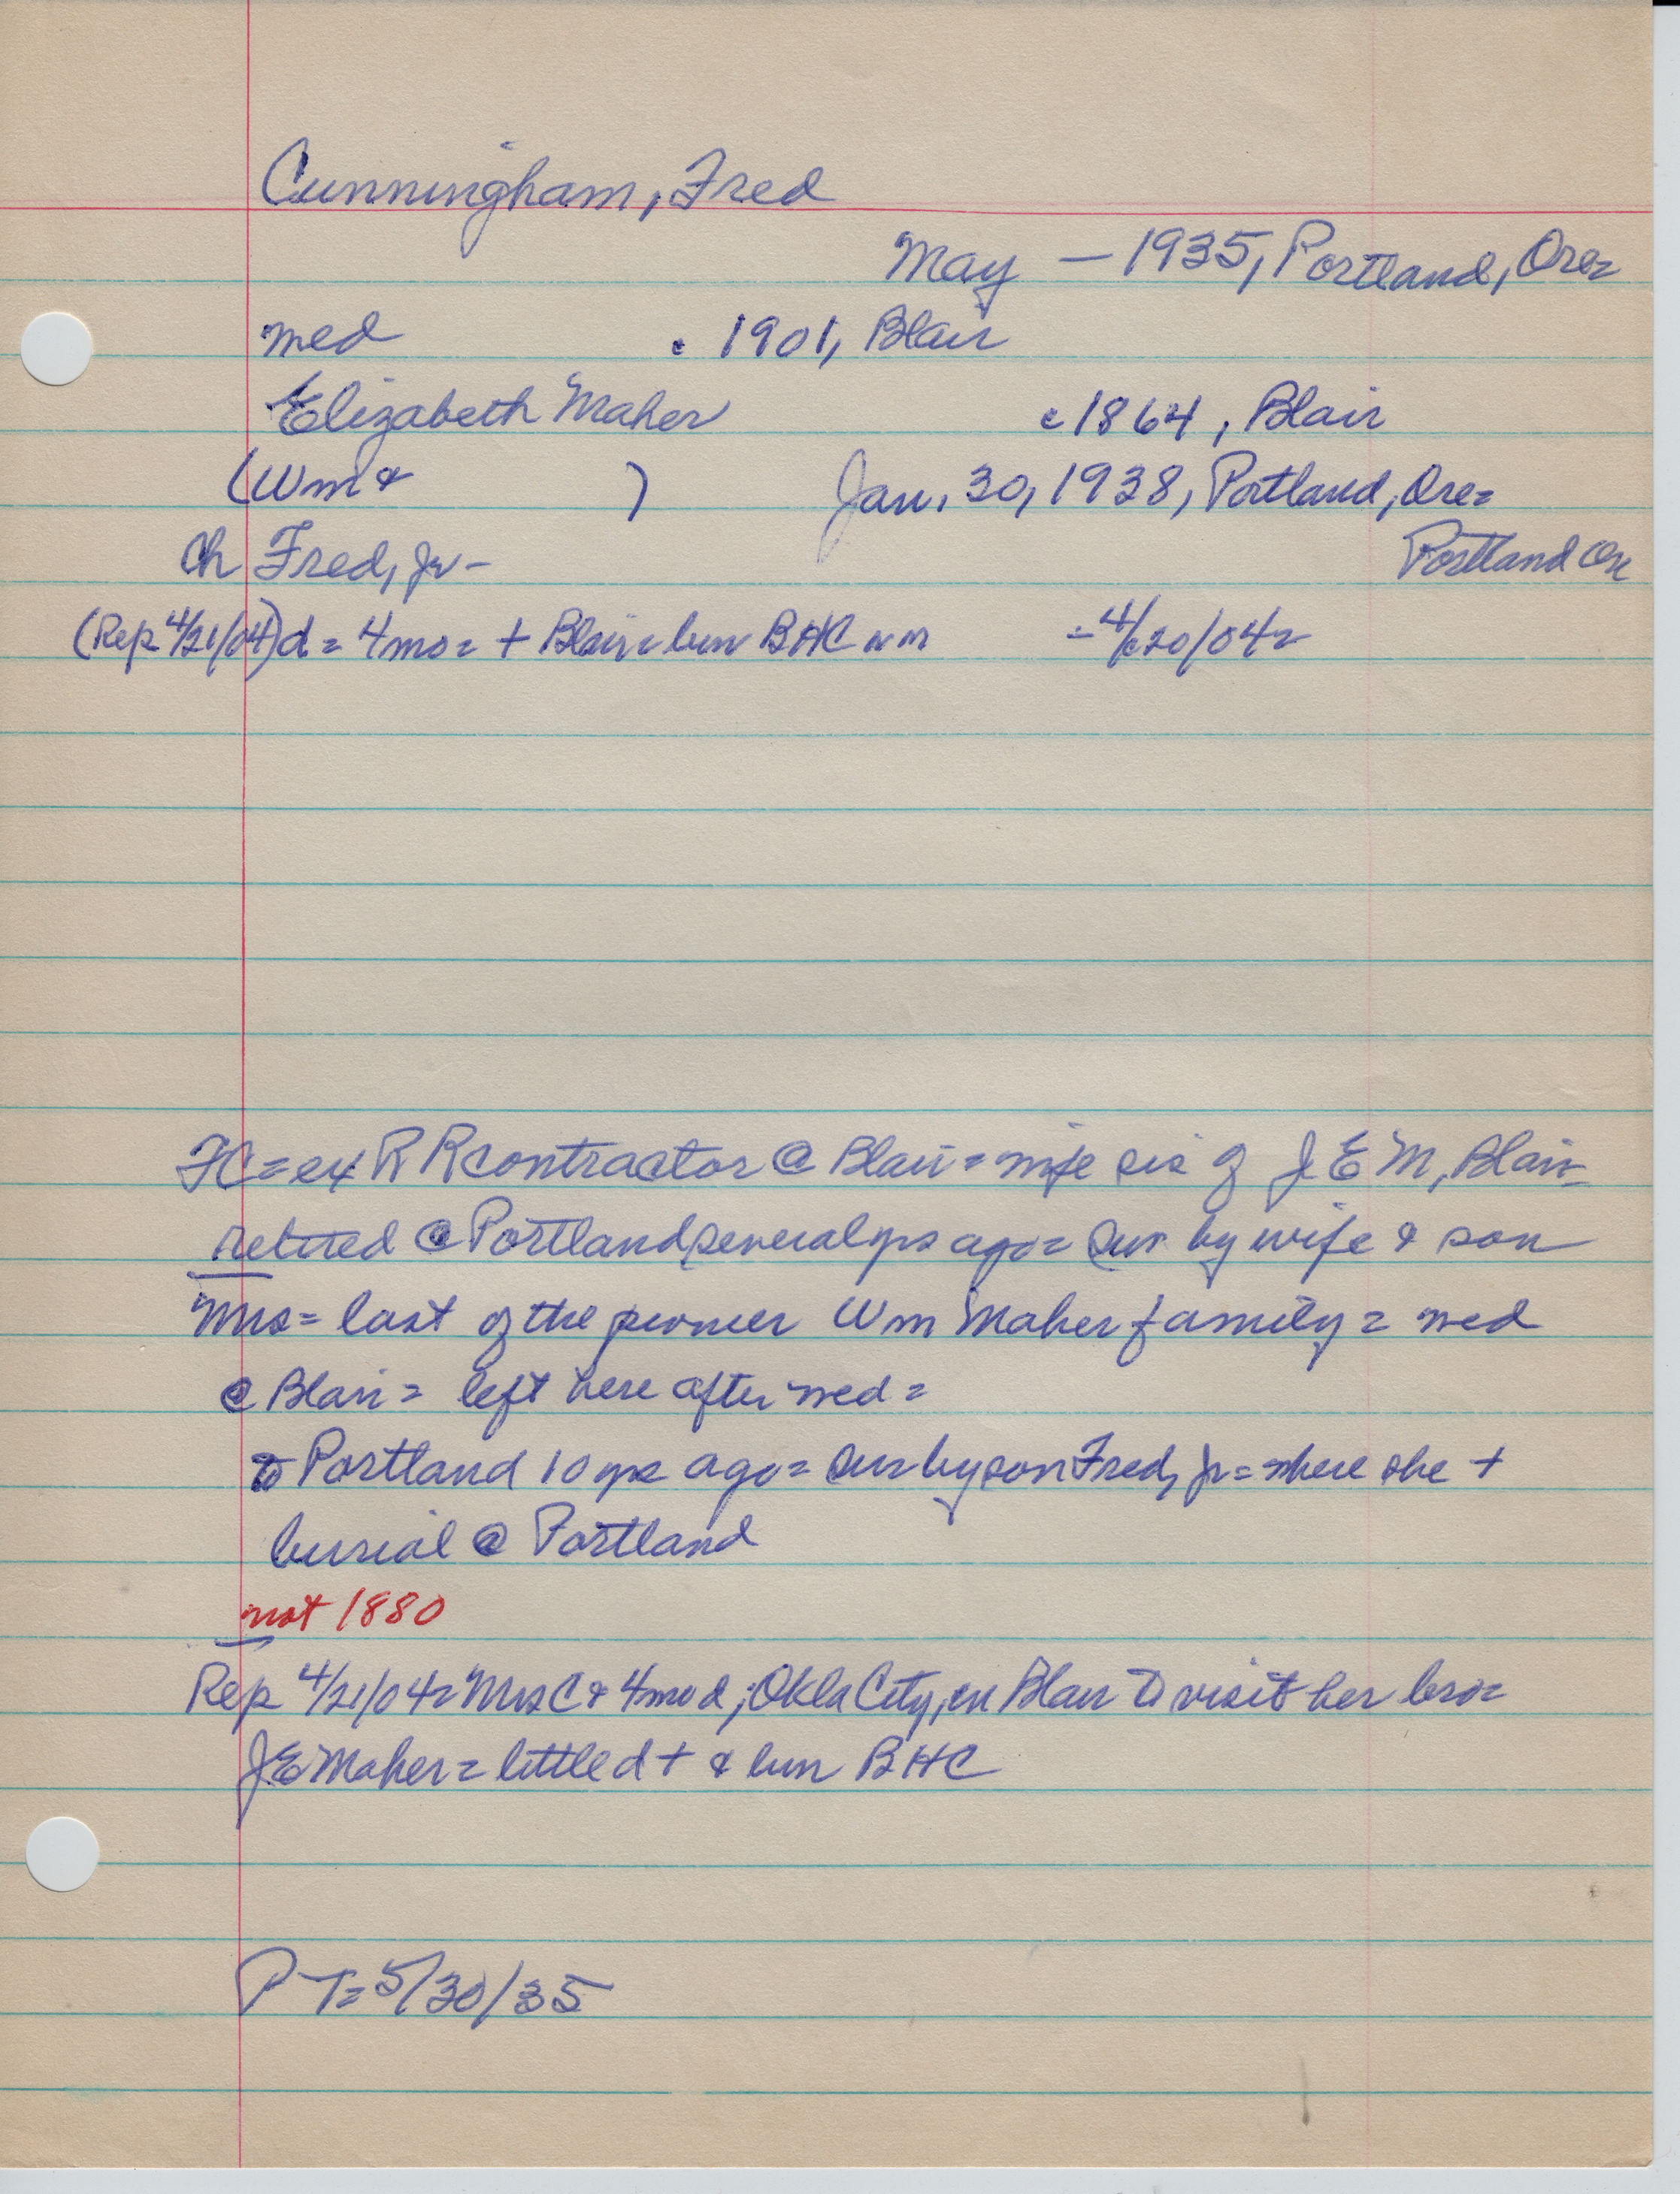 Cunningham, Fred
May – 1935, Portland, Ore=
wed c 1901, Blair
Elizabeth Maher c 1864, Blair
(Wm & ) Jan. 30, 1938, Portland, Ore=
Ch Fred, Jr – Portland Ore
(Rep 4/21/04) d = 4mo = + Blair = bur BHC nm = 4/20/04=
FC = ex RR contractor @ Blair = wife sis of J E M, Blair=
retired @ Portland several yrs ago = Sur by wife & son
Mrs = last of the pioneer Wm Maher family = wed
@ Blair = left here after wed =
to Portland 10 yrs ago = Sur by son Fred, Jr = where she +
burial @ Portland
not 1880
Rep 4/21/04 = Mrs C & 4mo d, Okla City, in Blair to visit her bro=
JE Maher = little d + & bur BHC
PT= 5/30/35